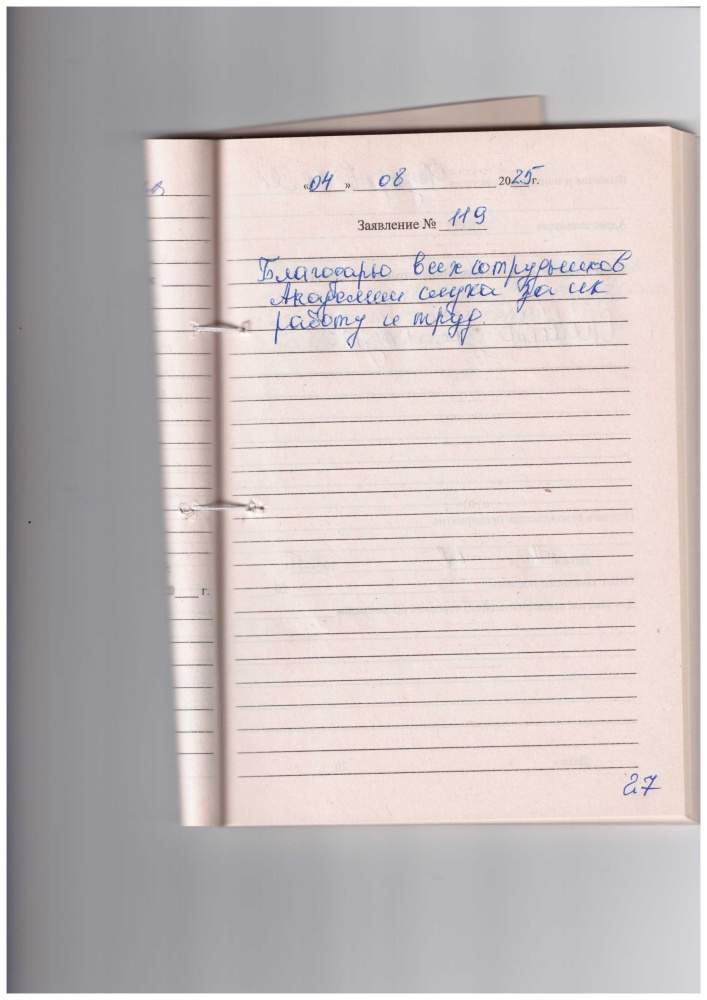 «04» 08 2025 г.
Заявление № 119
Благодарю всех сотрудников
Академии слуха за их
работу и труд
г.
27